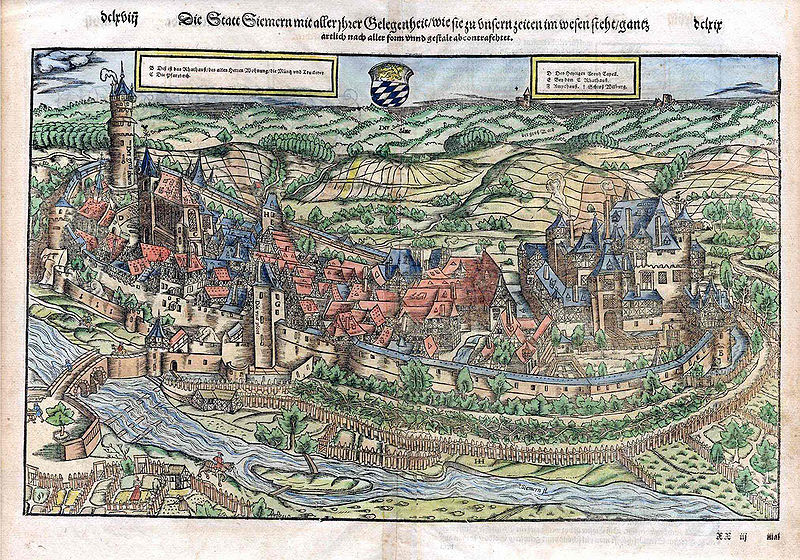 dclxviij
Die Statt Siemern mit aller jhrer Gelegenheit/wie sie zu vnsern zeiten im wesen steht/gantz
dclxix
artlich nach aller form vnnd gestalt abcontrafehtet.
B Diß ist das Rhathauß/des alten Herren Wohnung/die Müntz vnd
C Die Pfarrkirch.
D Des Heyligen Capell.
E Bey dem C Rhathauß.
F Schloß
Der
Siemern fl.
XX iij